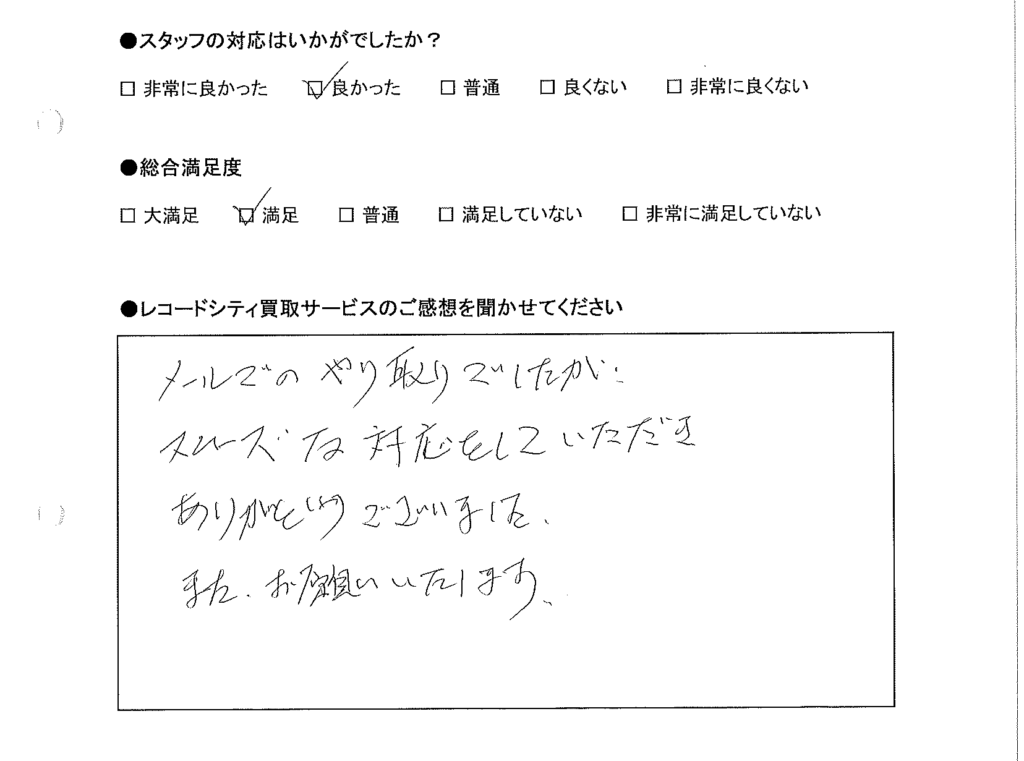 ●スタッフの対応はいかがでしたか？
□ 非常に良かった ☑ 良かった □ 普通 □ 良くない □ 非常に良くない
●総合満足度
□ 大満足 ☑ 満足 □ 普通 □ 満足していない □ 非常に満足していない
●レコードシティ買取サービスのご感想を聞かせてください
メールでのやり取りでしたが、
スムーズな対応をしていただき
ありがとうございました、
また、お願いいたします、